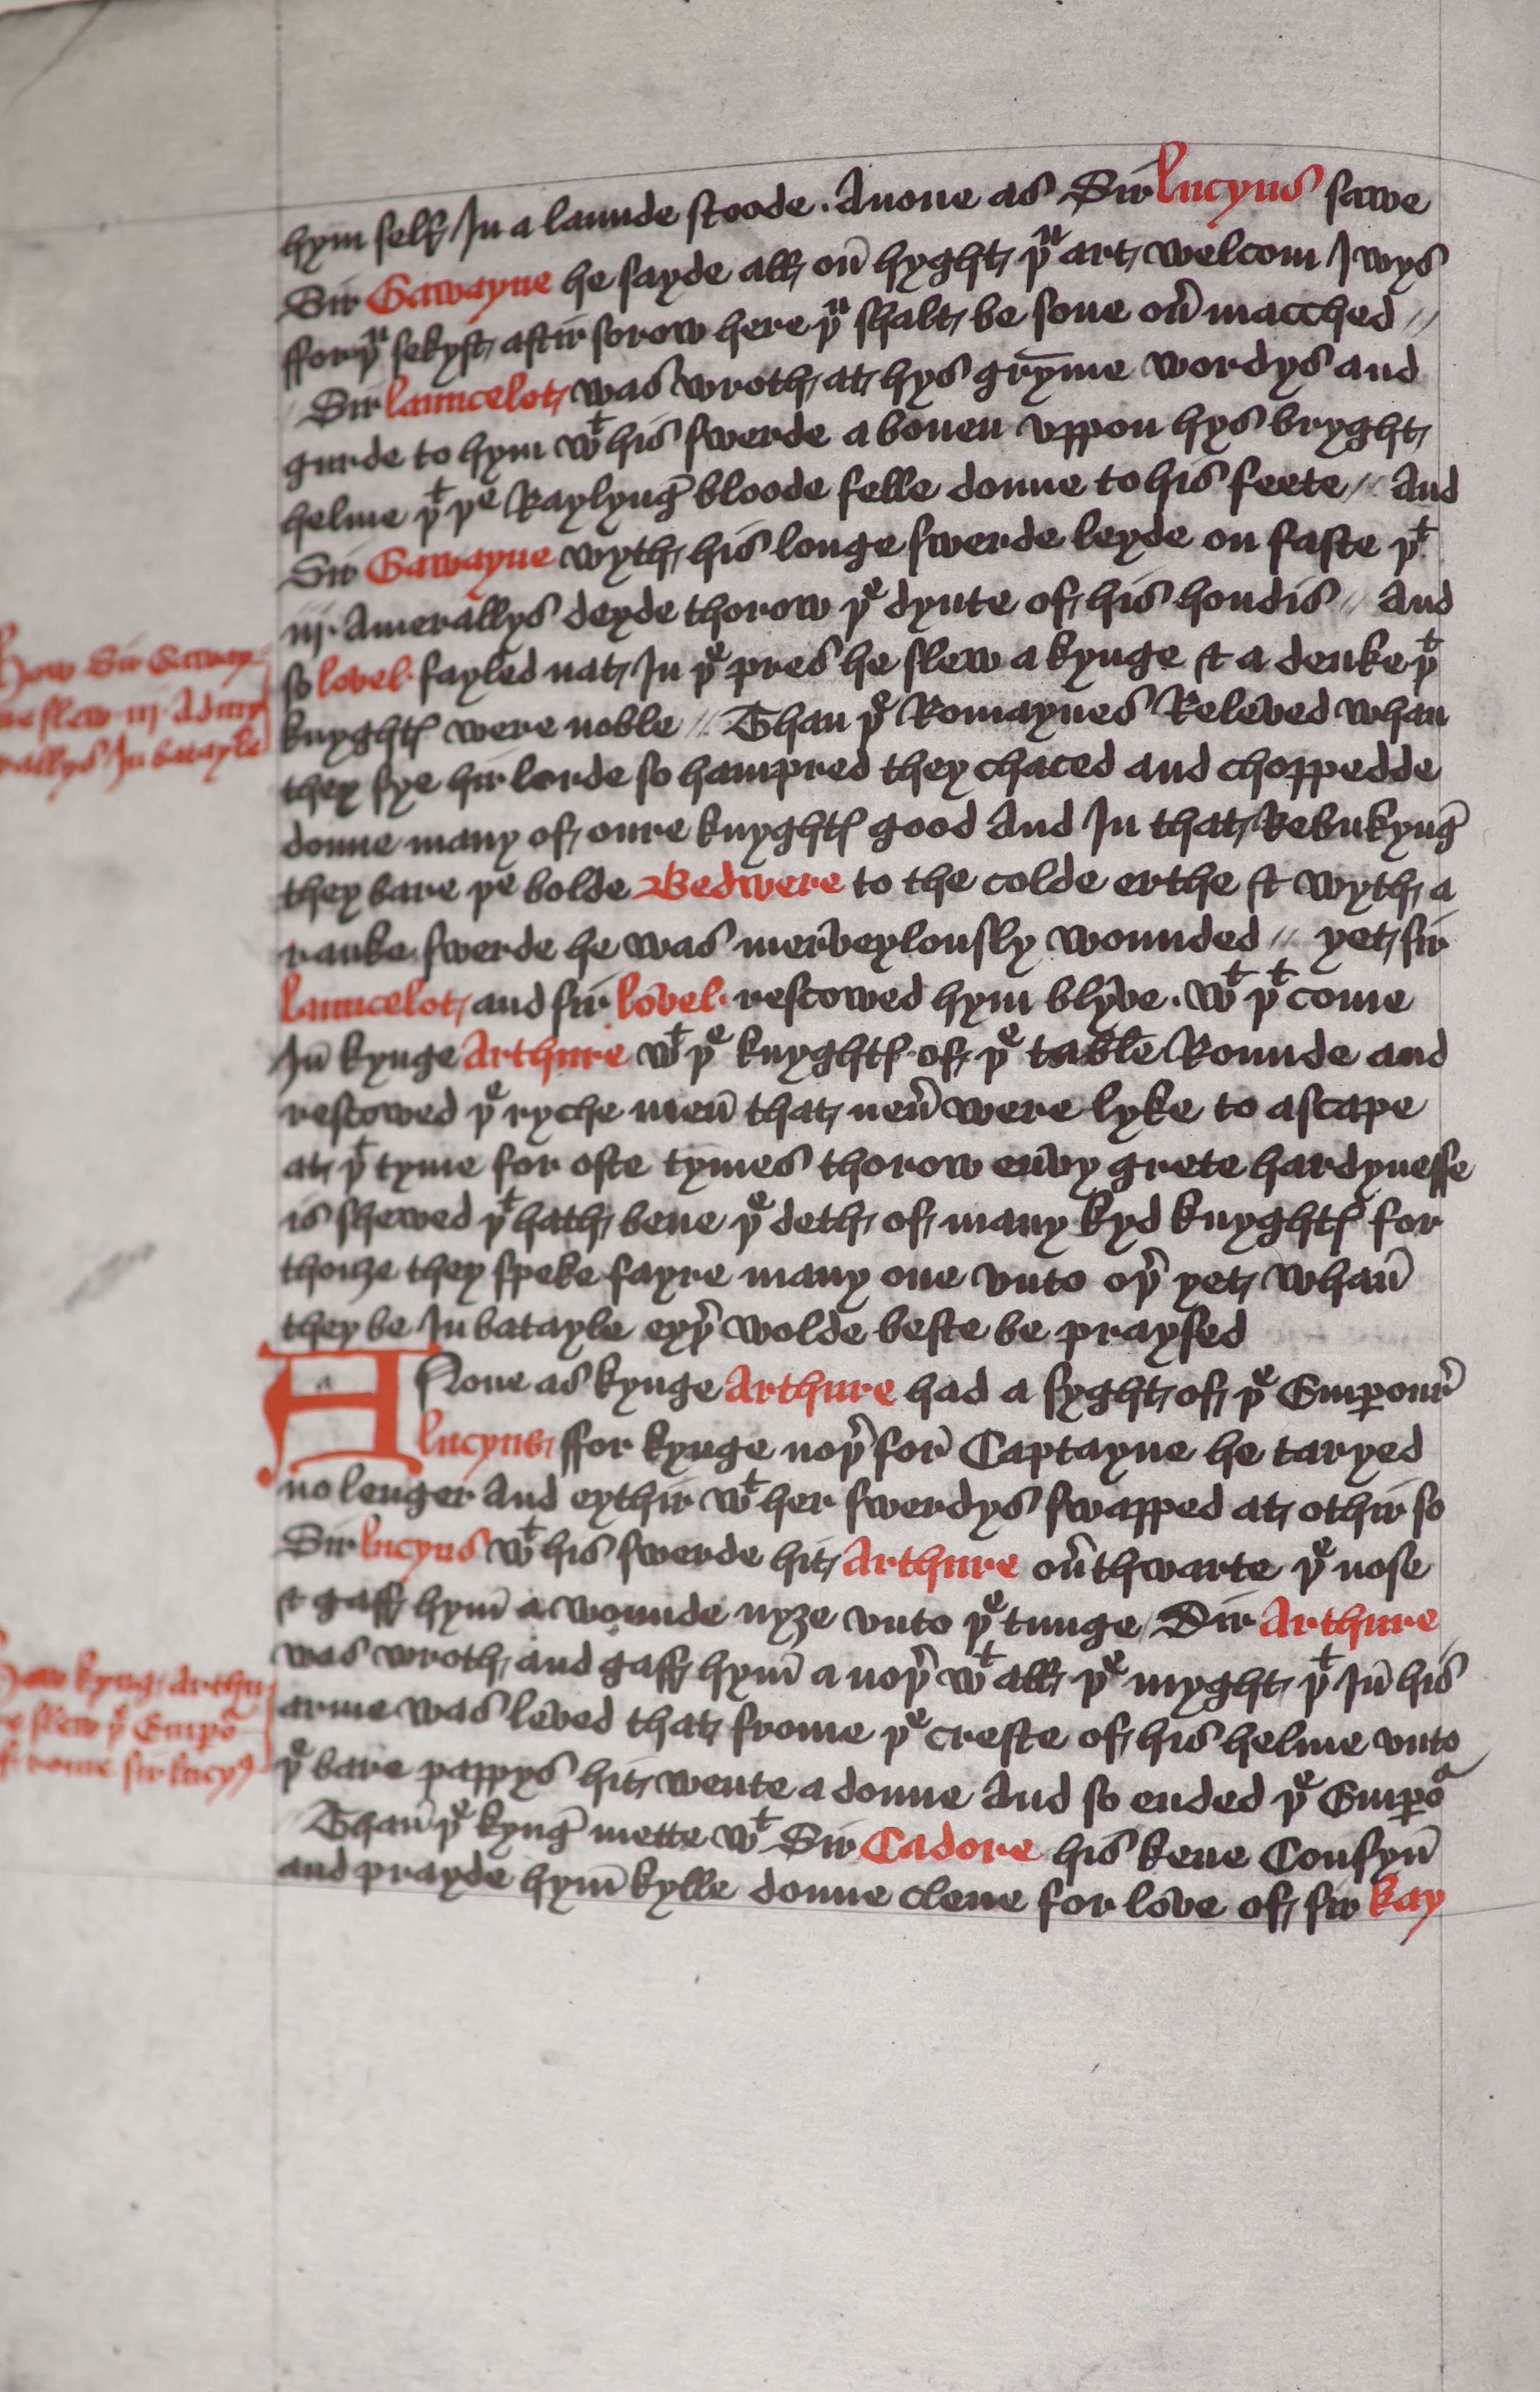 hym self In a launde stoode . Anone as Sir Lucyus sawe
Sir Gawayne he sayde all on hyght þu art welcom Iwys
ffor þu sekyst aftir sorow here þu shalt be sone ou̾macched //
Sir launcelot was wroth at hys gryme wordys and
gurde to hym wt his swerde a bouen vppon hys bryght
helme þt þe Raylyng bloode felle doune to his feete // And
Sir Gawayne wyth his longe swerde leyde on faste þt
iij Amerallys deyde thorow þe dynte of his hondis // And
so lovel fayled nat In þe pres he slew a kynge & a deuke þt
knyghtꝭ were noble // Than þe Romaynes Releved whan
they sye hir lorde so hampred they chaced and choppedde
doune many of oure knyghtꝭ good And In that Rebukyng
they bare þe bolde Bedwere to the colde erthe & wyth a
ranke swerde he was merveylously wounded // yet sir
launcelot and sir lovel rescowed hym blyve . wt þt come
In kynge Arthure wt þe knyghtꝭ of þe table Rounde and
rescowed þe ryche men that neu̾ were lyke to ascape
at þt tyme for ofte tymes thorow envy grete hardynesse
is shewed þt hath bene þe deth of many kyd knyghtꝭ for
thouze they speke fayre many one vnto oþ̾ yet whan
they be In batayle eyþ̾ wolde beste be praysed
ANone as kynge Arthure had a syght of þe Emꝑour
lucyus ffor kynge noþ̾ for Captayne he taryed
no lenger And eythir wt her swerdys swapped at othir so
Sir lucyus wt his swerde hit Arthure ou̾thwarte þe nose
& gaff hym a wounde nyze vnto þe tunge Sir Arthure
was wroth and gaff hym a noþ̾ wt all þe myght þt In his
arme was leved that frome þe creste of his helme vnto
þe bare pappys hit wente a doune And so ended þe Emꝑoᵃ
Than þe kyng mette wt Sir Cadore his kene Cousyn
and prayde hym kylle doune clene for love of sir kay
How Sir Gaway-
ne slew iij Admy
rallys In batayle
How kyng Arthu
re slew þe Emꝑo
of rome sir lucyꝰ